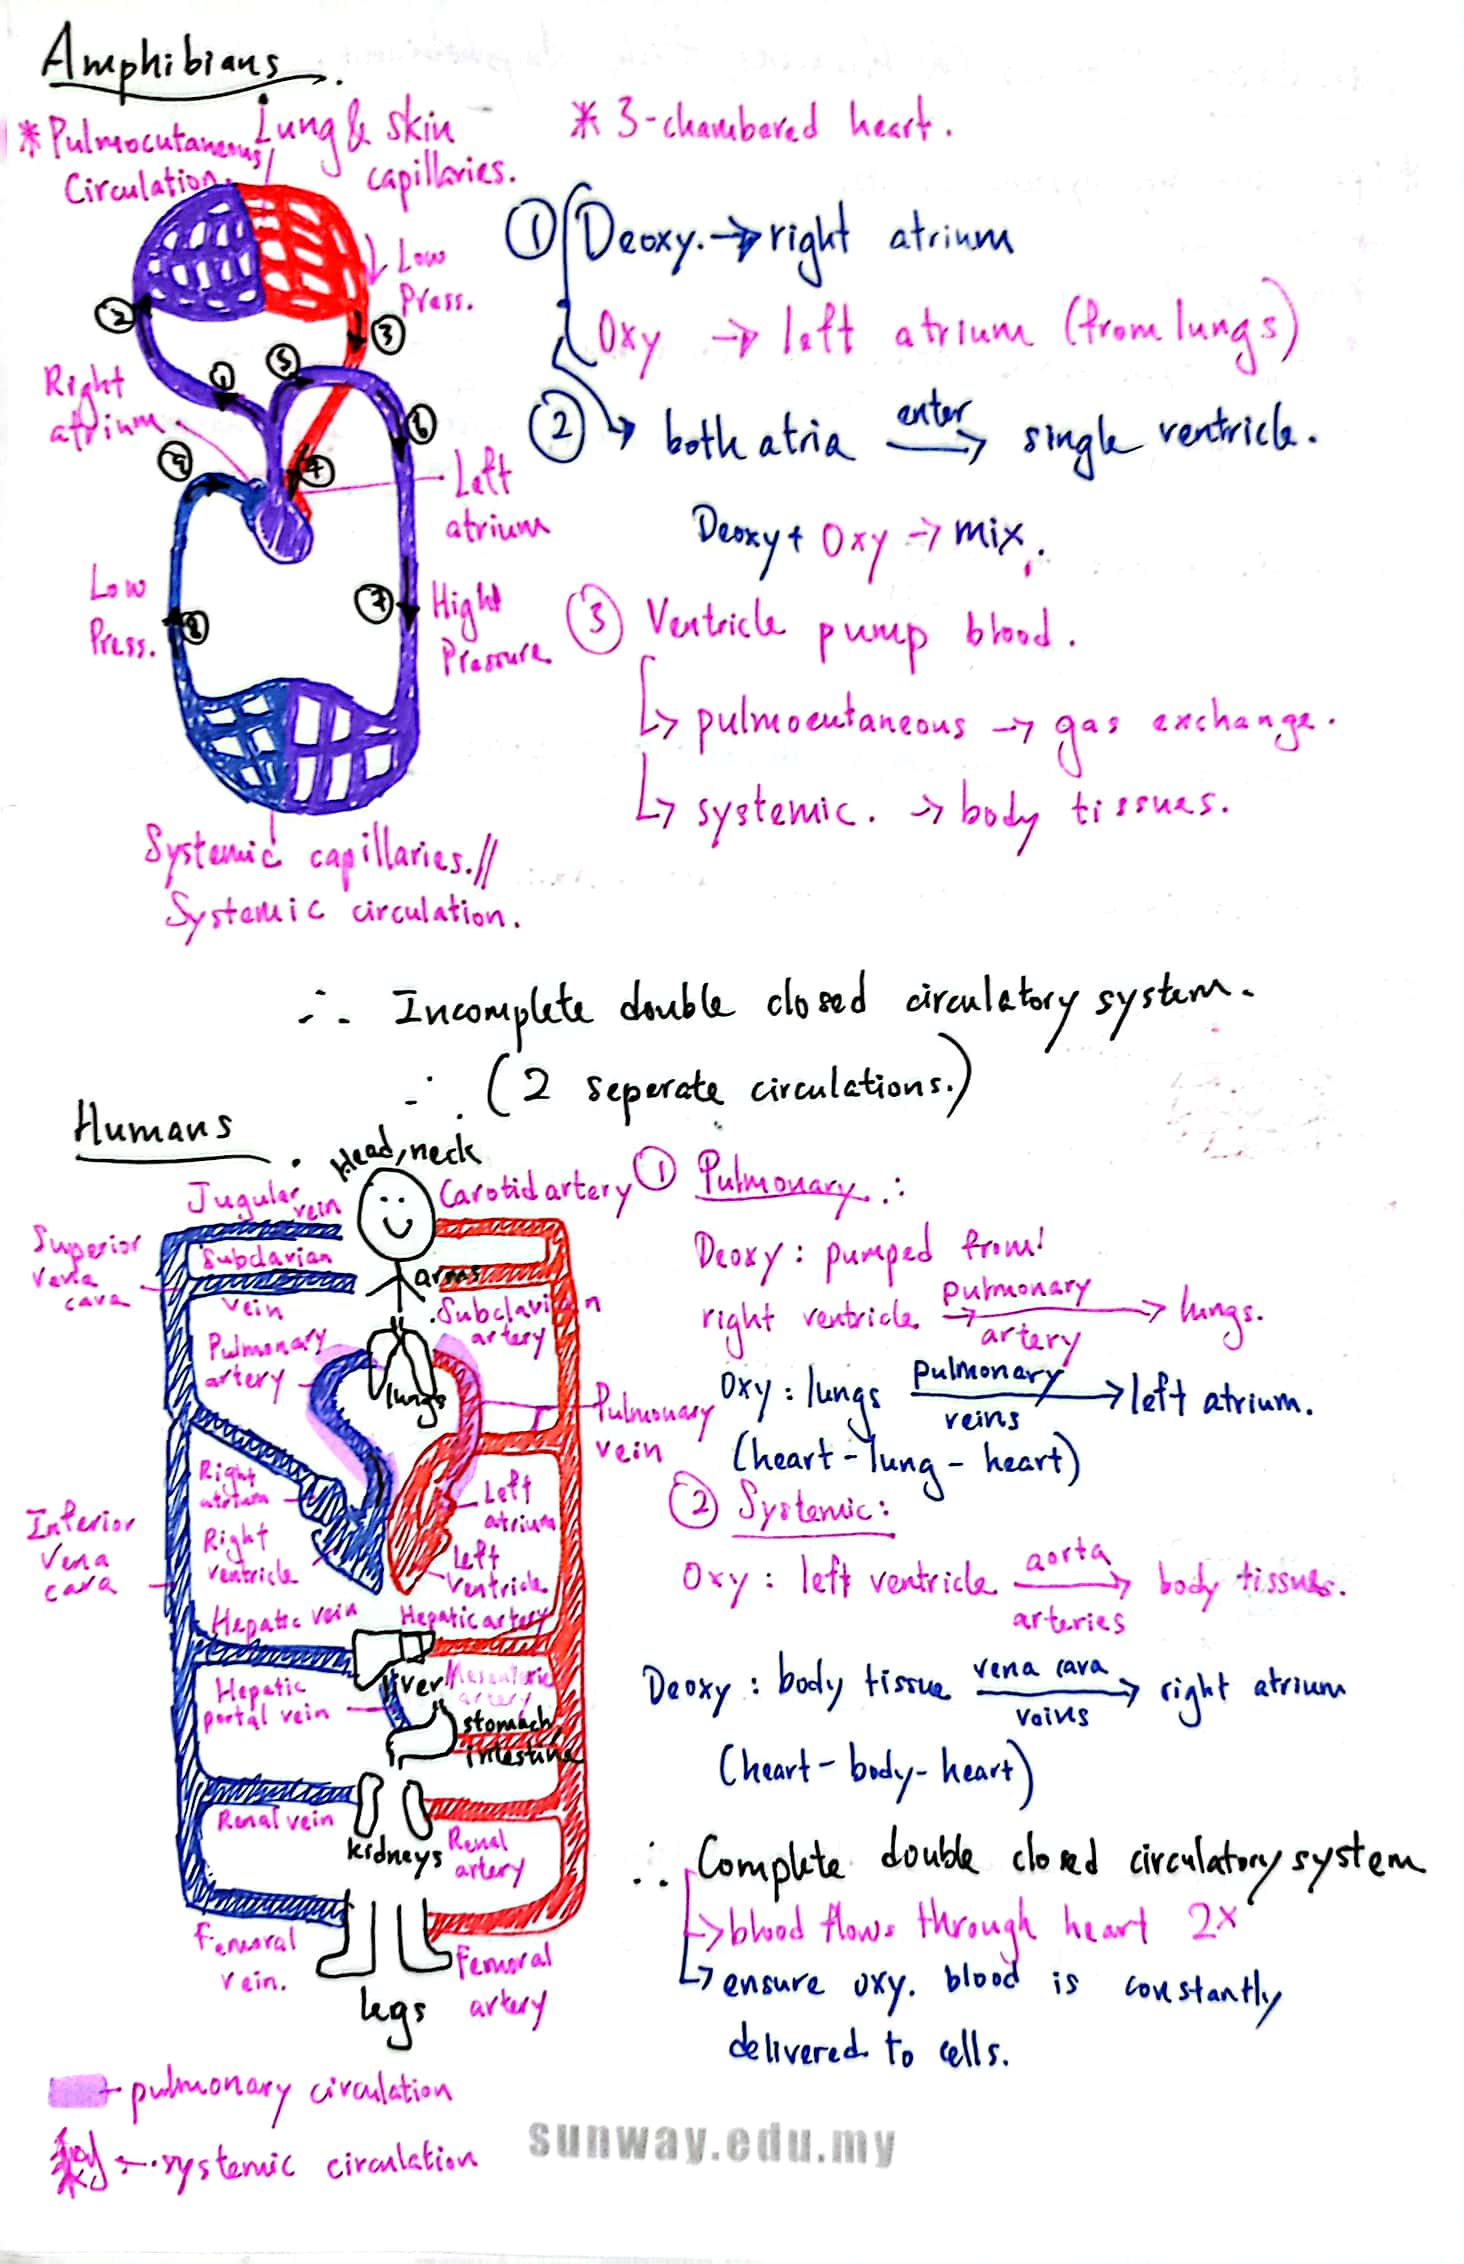 Amphibians.
* Pulmocutaneous
Circulation.
Lung & skin
capillaries.
* 3-chambered heart.
Low
Press.
Right
atrium
Left
atrium
Low
Press.
High
Pressure
1 2 3 4 5 6 7 8 9
Systemic capillaries.//
Systemic circulation.
① Deoxy. → right atrium
Oxy → left atrium (from lungs)
② → both atria enter → single ventricle.
Deoxy + Oxy → mix.
③ Ventricle pump blood.
↳ pulmocutaneous → gas exchange.
↳ systemic. → body tissues.
∴ Incomplete double closed circulatory system.
∴ (2 seperate circulations.)
Humans.
Head, neck
Jugular vein
Carotid artery
Superior
vena
cava
Subclavian
vein
arms
Subclavian
artery
Pulmonary
artery
lungs
Pulmonary
vein
Right
atrium
Left
atrium
Inferior
vena
cava
Right
ventricle
Left
ventricle
Hepatic vein
Hepatic artery
liver
Mesenteric
artery
Hepatic
portal vein
stomach,
intestine
Renal vein
kidneys
Renal
artery
Femoral
vein.
Femoral
artery
legs
① Pulmonary.:
Deoxy : pumped from!
right ventricle pulmonary artery → lungs.
Oxy : lungs pulmonary veins → left atrium.
(heart - lung - heart)
② Systemic:
Oxy : left ventricle aorta arteries → body tissues.
Deoxy : body tissue vena cava veins → right atrium
(heart - body - heart)
∴ Complete double closed circulatory system
↳ blood flows through heart 2x
↳ ensure oxy. blood is constantly
delivered to cells.
- pulmonary circulation
systemic circulation
sunway.edu.my